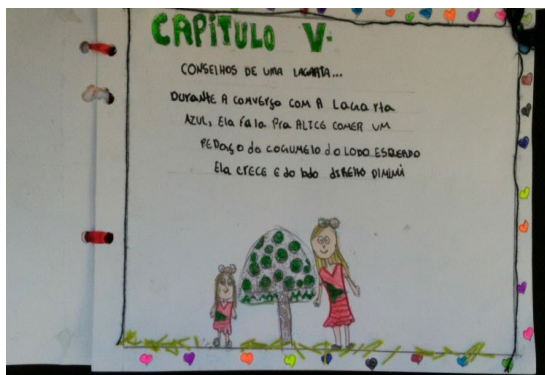 CAPÍTULO V:
CONSELHOS DE UMA LAGARTA...
DURANTE A CONVERSO COM A LAGARTA
AZUL, ELA FALA PRA ALICE COMER UM
PEDAÇO DO COGUMELO DO LODO ESQERDO
ELA CRECE E DO LADO DIREITO DIMINUI